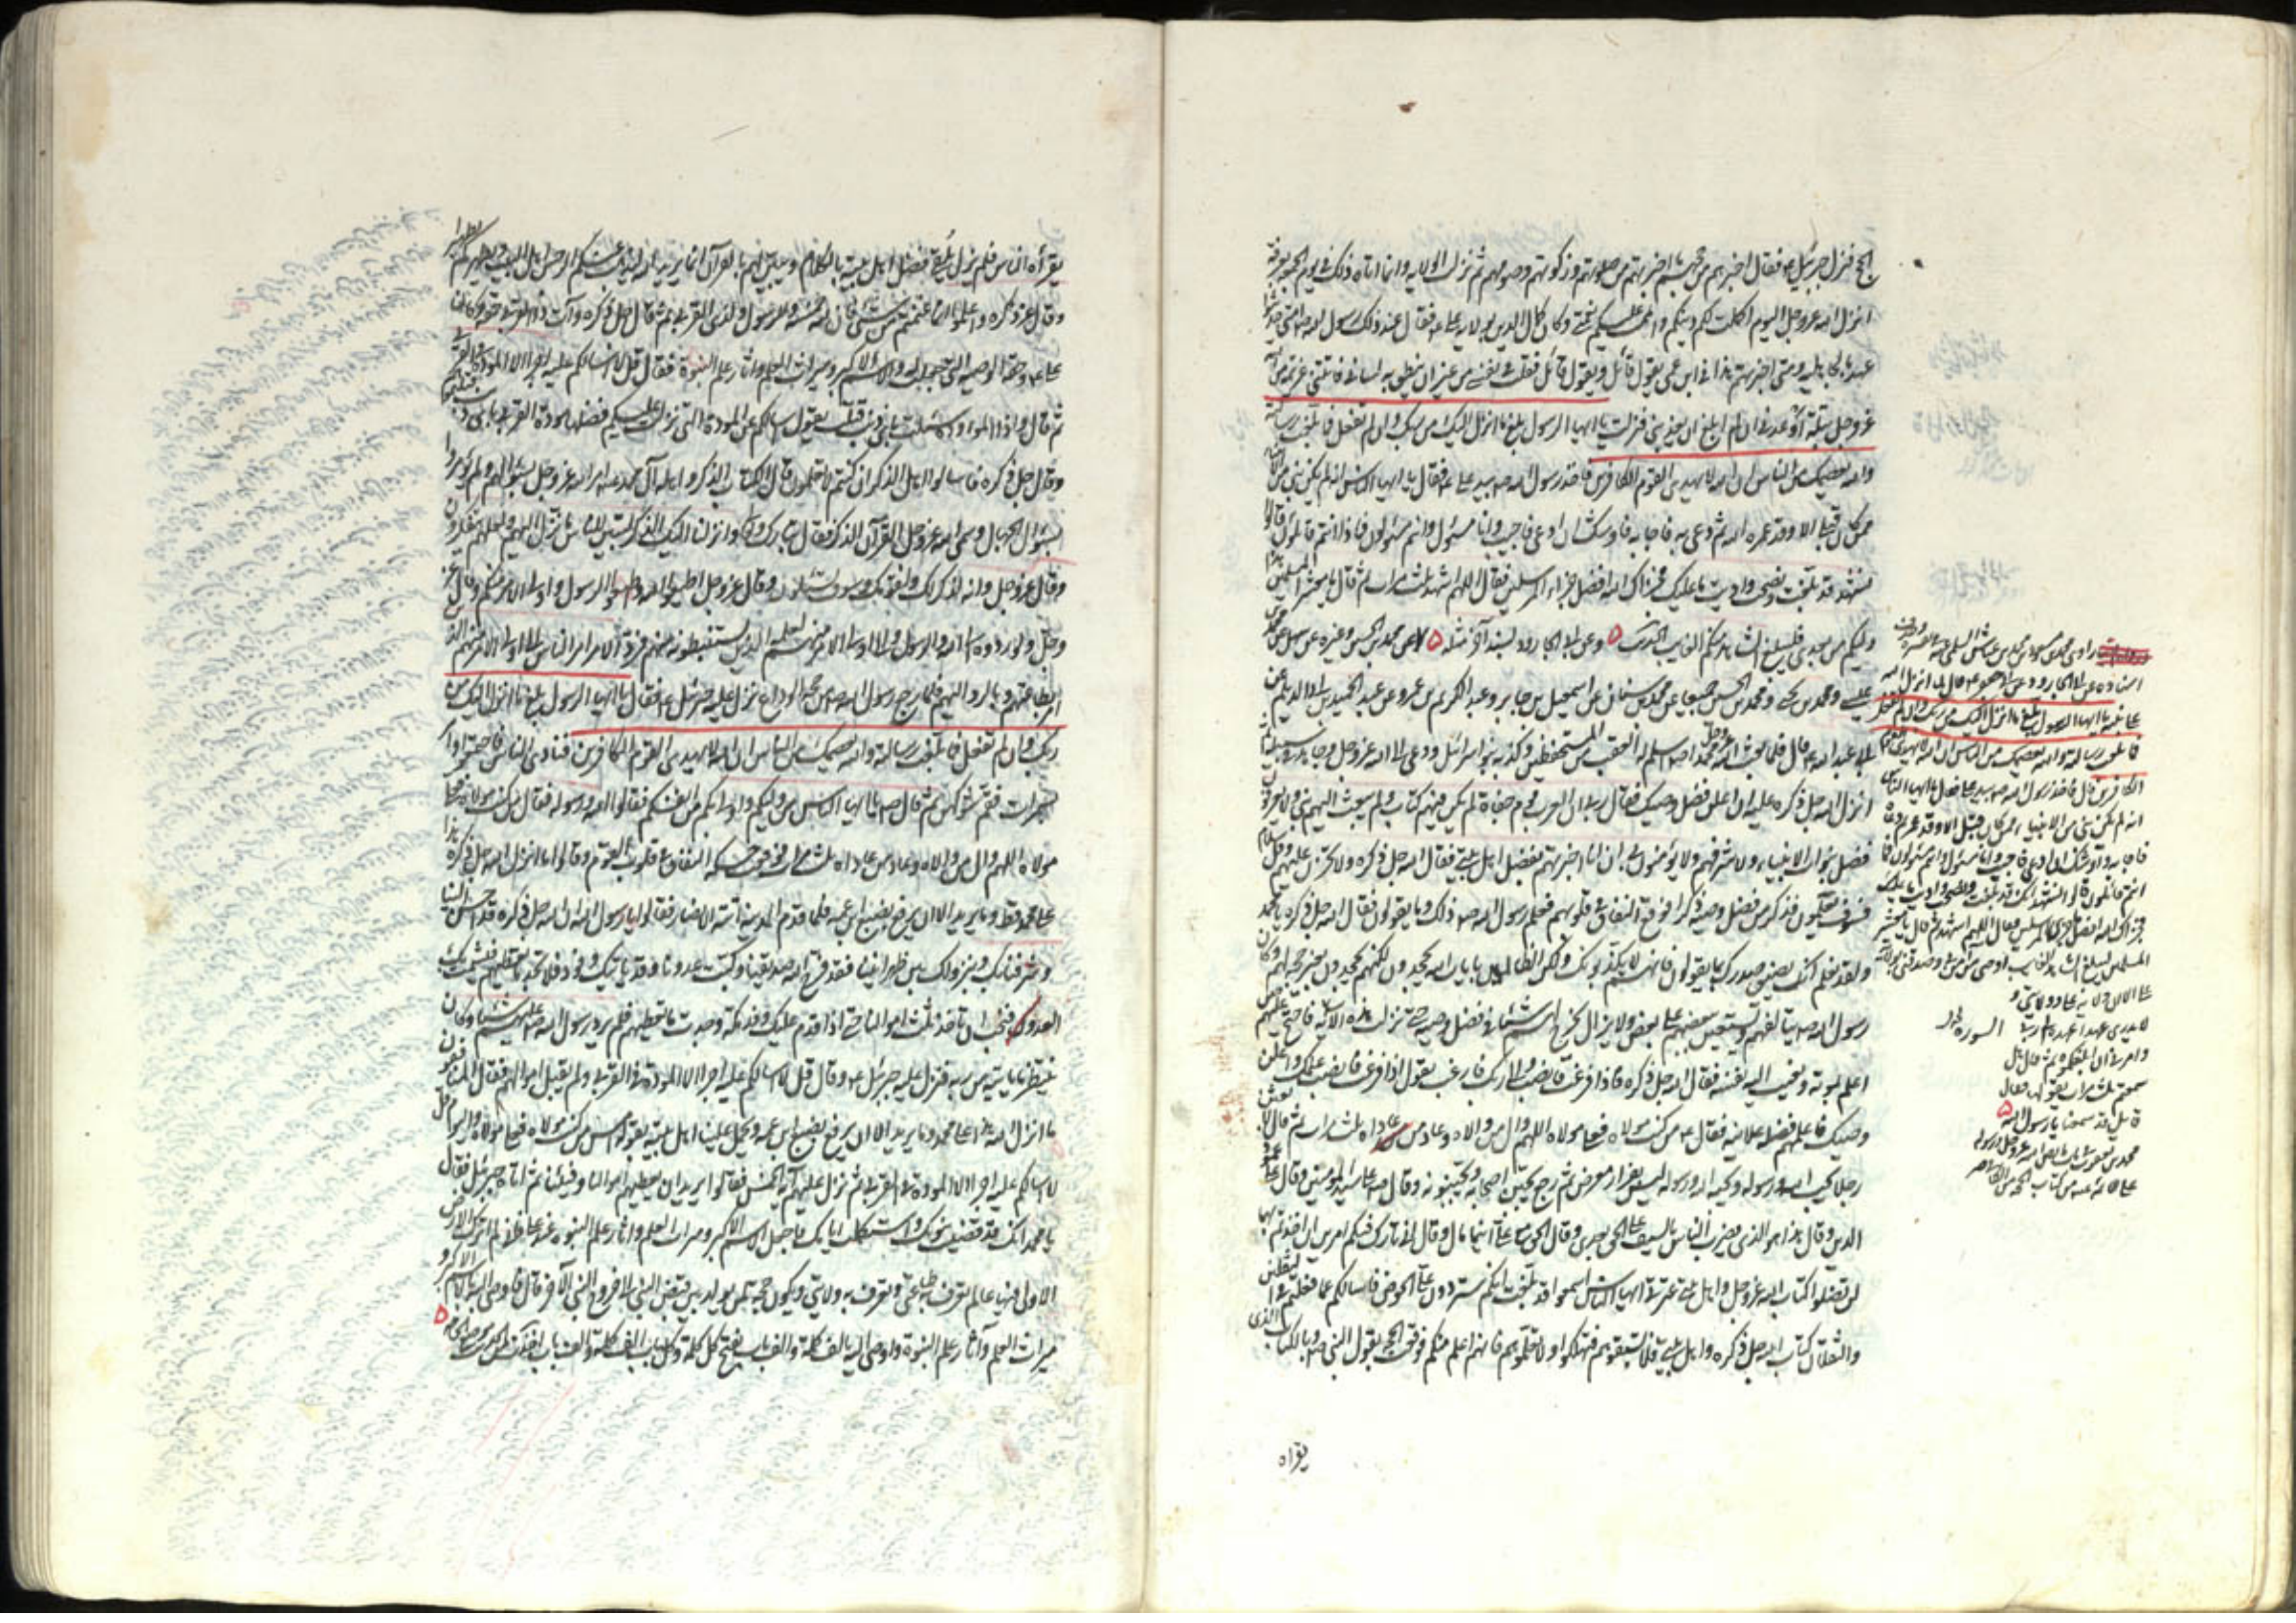 الحج فنزل جبرئيل ع فقال اخبرهم من حجهم ما اخبرتهم من صلوتهم وزكوتهم وصومهم ثم نزلت الولاية وانما اتاه ذلك في يوم الجمعة بعرفة
انزل الله عز وجل اليوم اكملت لكم دينكم واتممت عليكم نعمتي وكان كمال الدين بولاية علي ع فقال عند ذلك رسول الله ص امتي حديثوا
عهد بالجاهلية ومتى اخبرتهم بهذا في ابن عمي يقول قائل ويقول قائل فقلت في نفسي من غير ان ينطق به لساني فاتتني عزيمة من الله
عز وجل بتلة اوعدني ان لم ابلغ ان يعذبني فنزلت يا ايها الرسول بلغ ما انزل اليك من ربك وان لم تفعل فما بلغت رسالته
والله يعصمك من الناس ان الله لا يهدي القوم الكافرين فاخذ رسول الله ص بيد علي ع فقال يا ايها الناس انه لم يكن نبي من الانبياء
ممن كان قبلي الا وقد عمره الله ثم دعاه فاجابه فاوشك ان ادعى فاجيب وانا مسئول وانتم مسئولون فماذا انتم قائلون قالوا
نشهد انك قد بلغت ونصحت واديت ما عليك فجزاك الله افضل جزاء المرسلين فقال اللهم اشهد ثلث مرات ثم قال يا معشر المسلمين هذا
وليكم من بعدي فليبلغ الشاهد منكم الغايب الحديث ۵ وعن ابي الجارود بسند آخر مثله ۵ محمد بن الحسين وغيره عن سهل عن محمد بن
عيسى ومحمد بن يحيى ومحمد بن الحسين جميعا عن محمد بن سنان عن اسمعيل بن جابر وعبد الكريم بن عمرو عن عبد الحميد بن ابي الديلم عن
ابي عبد الله ع قال فلما بعث الله عز وجل محمدا ص اسلم له العقب من المستحفظين وكذبه بنو اسرائيل ودعى الى الله عز وجل وجاهد في سبيله ثم
انزل الله جل ذكره عليه ان اعلن فضل وصيك فقال رب ان العرب قوم جفاة لم يكن فيهم كتاب ولم يبعث اليهم نبي ولا يعرفون
فضل نبوات الانبياء ولا شرفهم ولا يؤمنون بي ان انا اخبرتهم بفضل اهل بيتي فقال الله جل ذكره ولا تحزن عليهم وقل سلام
فسوف تعلمون فذكر من فضل وصيه ذكرا فوقع النفاق في قلوبهم فعلم رسول الله ص ذلك وما يقولون فقال الله جل ذكره يا محمد
ولقد نعلم انك يضيق صدرك بما يقولون فانهم لا يكذبونك ولكن الظالمين بايات الله يجحدون لكنهم يجحدون بغير حجة لهم وكان
رسول الله ص يتالفهم ويستعين ببعضهم على بعض ولا يزال يخرج لهم شيئا في فضل وصيه حتى نزلت هذه الاية فاحتج عليهم حين
اعلم بموته ونعيت اليه نفسه فقال الله جل ذكره فاذا فرغت فانصب والى ربك فارغب يقول اذا فرغت فانصب علمك واعلن
وصيك فاعلمهم فضله علانية فقال ع من كنت مولاه فعلي مولاه اللهم وال من والاه وعاد من عاداه ثلث مرات ثم قال لابعثن
رجلا يحب الله ورسوله ويحبه الله ورسوله ليس بفرار يعرض بمن رجع يجبن اصحابه ويجبنونه وقال ص علي سيد المؤمنين وقال علي عمود
الدين وقال هذا هو الذي يضرب الناس بالسيف على الحق بعدي وقال الحق مع علي اينما مال وقال اني تارك فيكم امرين ان اخذتم بهما
لن تضلوا كتاب الله عز وجل واهل بيتي عترتي ايها الناس اسمعوا قد بلغت انكم ستردون علي الحوض فاسالكم عما فعلتم في الثقلين
والثقلان كتاب الله جل ذكره واهل بيتي فلا تسبقوهم فتهلكوا ولا تعلموهم فانهم اعلم منكم فوقعت الحجة بقول النبي ص وبالكتاب الذي
يقراه
اسناده عن ابي الجارود عن ابي جعفر ع قال لما انزل الله
على نبيه يا ايها الرسول بلغ ما انزل اليك من ربك وان لم تفعل
فما بلغت رسالته والله يعصمك من الناس ان الله لا يهدي القوم
الكافرين قال فاخذ رسول الله ص بيد علي فقال يا ايها الناس
انه لم يكن نبي من الانبياء ممن كان قبلي الا وقد عمر ثم دعاه
فاجابه واوشك ان ادعى فاجيب وانا مسئول وانتم مسئولون فما
انتم قائلون قالوا نشهد انك قد بلغت ونصحت واديت ما عليك
فجزاك الله افضل جزاء المرسلين فقال اللهم اشهد ثم قال يا معشر
المسلمين ليبلغ الشاهد الغايب اوصي من آمن بي وصدقني بولاية
علي الا ان ولاية علي ولايتي و
لا يدري عهدا عهده الي ربي
وامرني ان ابلغكموه ثم قال هل
سمعتم ثلث مرات يقولها فقال
قائل قد سمعنا يا رسول الله ۵
يقرأه الناس فلم يزل يلقي فضل اهل بيته بالكلام ويبين لهم بالقرآن انما يريد الله ليذهب عنكم الرجس اهل البيت ويطهركم تطهيرا
وقال عز ذكره واعلموا انما غنمتم من شيء فان لله خمسه وللرسول ولذي القربى ثم قال جل ذكره وآت ذا القربى حقه فكان
علي ع وحقه الوصية التي جعلت له والاسم الاكبر وميراث العلم واثار علم النبوة فقال قل لا اسالكم عليه اجرا الا المودة في القربى
ثم قال واذا المودة سئلت باي ذنب قتلت يقول اسالكم عن المودة التي نزلت عليكم فضلها مودة القربى باي ذنب قتلتموهم
وقال جل ذكره فاسالوا اهل الذكر ان كنتم لا تعلمون قال الكتاب الذكر واهله آل محمد ع امر الله عز وجل بسؤالهم ولم يؤمروا
بسؤال الجهال وسمى الله عز وجل القرآن الذكر فقال تبارك وتعالى وانزلنا اليك الذكر لتبين للناس ما نزل اليهم ولعلهم يتفكرون
وقال عز وجل وانه لذكر لك ولقومك وسوف تسئلون وقال عز وجل اطيعوا الله واطيعوا الرسول واولي الامر منكم وقال عز
وجل ولو ردوه الى الله والى الرسول والى اولي الامر منهم لعلمه الذين يستنبطونه منهم فرد الامر امر الناس الى اولي الامر منهم الذين
امر بطاعتهم وبالرد اليهم فلما رجع رسول الله ص من حجة الوداع نزل عليه جبرئيل ع فقال يا ايها الرسول بلغ ما انزل اليك من
ربك وان لم تفعل فما بلغت رسالته والله يعصمك من الناس ان الله لا يهدي القوم الكافرين فنادى الناس فاجتمعوا وامر
بسمرات فقم شوكهن ثم قال ص يا ايها الناس من وليكم واولى بكم من انفسكم فقالوا الله ورسوله فقال من كنت مولاه فعلي
مولاه اللهم وال من والاه وعاد من عاداه ثلث مرات فوقعت حسكة النفاق في قلوب القوم وقالوا ما انزل الله جل ذكره هذا
على محمد قط وما يريد الا ان يرفع بضبع ابن عمه فلما قدم المدينة اتته الانصار فقالوا يا رسول الله ان الله جل ذكره قد احسن الينا
وشرفنا بك وبنزولك بين ظهرانينا فقد فرح الله صديقنا وكبت عدونا وقد ياتيك وفود فلا تجد ما تعطيهم فيشمت بك
العدو فنحب ان تاخذ ثلث اموالنا حتى اذا قدم عليك وفد مكة وجدت ما تعطيهم فلم يرد رسول الله ص عليهم شيئا وكان
ينتظر ما ياتيه من ربه فنزل عليه جبرئيل ع وقال قل لا اسالكم عليه اجرا الا المودة في القربى ولم يقبل اموالهم فقال المنافقون
ما انزل الله هذا على محمد وما يريد الا ان يرفع بضبع ابن عمه ويحمل علينا اهل بيته يقول امس من كنت مولاه فعلي مولاه واليوم قل
لا اسالكم عليه اجرا الا المودة في القربى ثم نزل عليه آية الخمس فقالوا يريد ان يعطيهم اموالنا وفيئنا ثم اتاه جبرئيل فقال
يا محمد انك قد قضيت نبوتك واستكملت ايامك فاجعل الاسم الاكبر وميراث العلم واثار علم النبوة عند علي فاني لم اترك الارض
الا ولي فيها عالم تعرف به طاعتي وتعرف به ولايتي ويكون حجة لمن يولد بين قبض النبي الى خروج النبي الآخر قال فاوصى اليه بالاسم الاكبر و
ميراث العلم وآثار علم النبوة واوصى اليه بالف كلمة والف باب يفتح كل كلمة وكل باب الف كلمة والف باب ۵